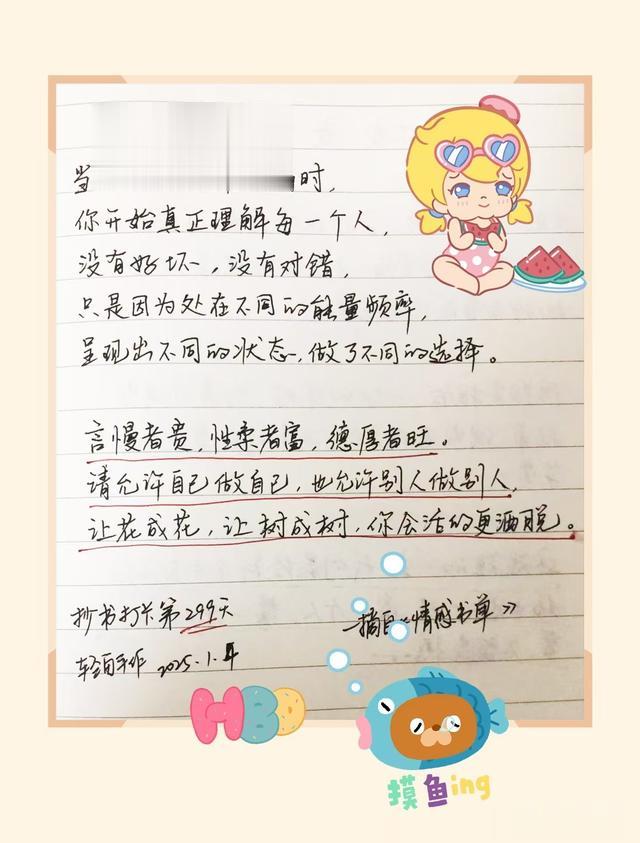 当 时,
你开始真正理解每一个人,
没有好坏,没有对错,
只是因为处在不同的能量频率,
呈现出不同的状态,做了不同的选择。
言慢者贵,性柔者富,德厚者旺。
请允许自己做自己,也允许别人做别人,
让花成花,让树成树,你会活的更洒脱。
抄书打卡第299天
摘自《情感书单》
手作 2025.1.4
HBD
摸鱼ing